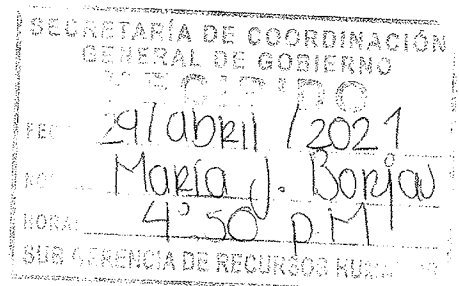 SECRETARÍA DE COORDINACIÓN
GENERAL DE GOBIERNO
RECIBIDO
29/abril/2021
María J. Borjas
HORA: 4:50 pM
SUB GERENCIA DE RECURSOS